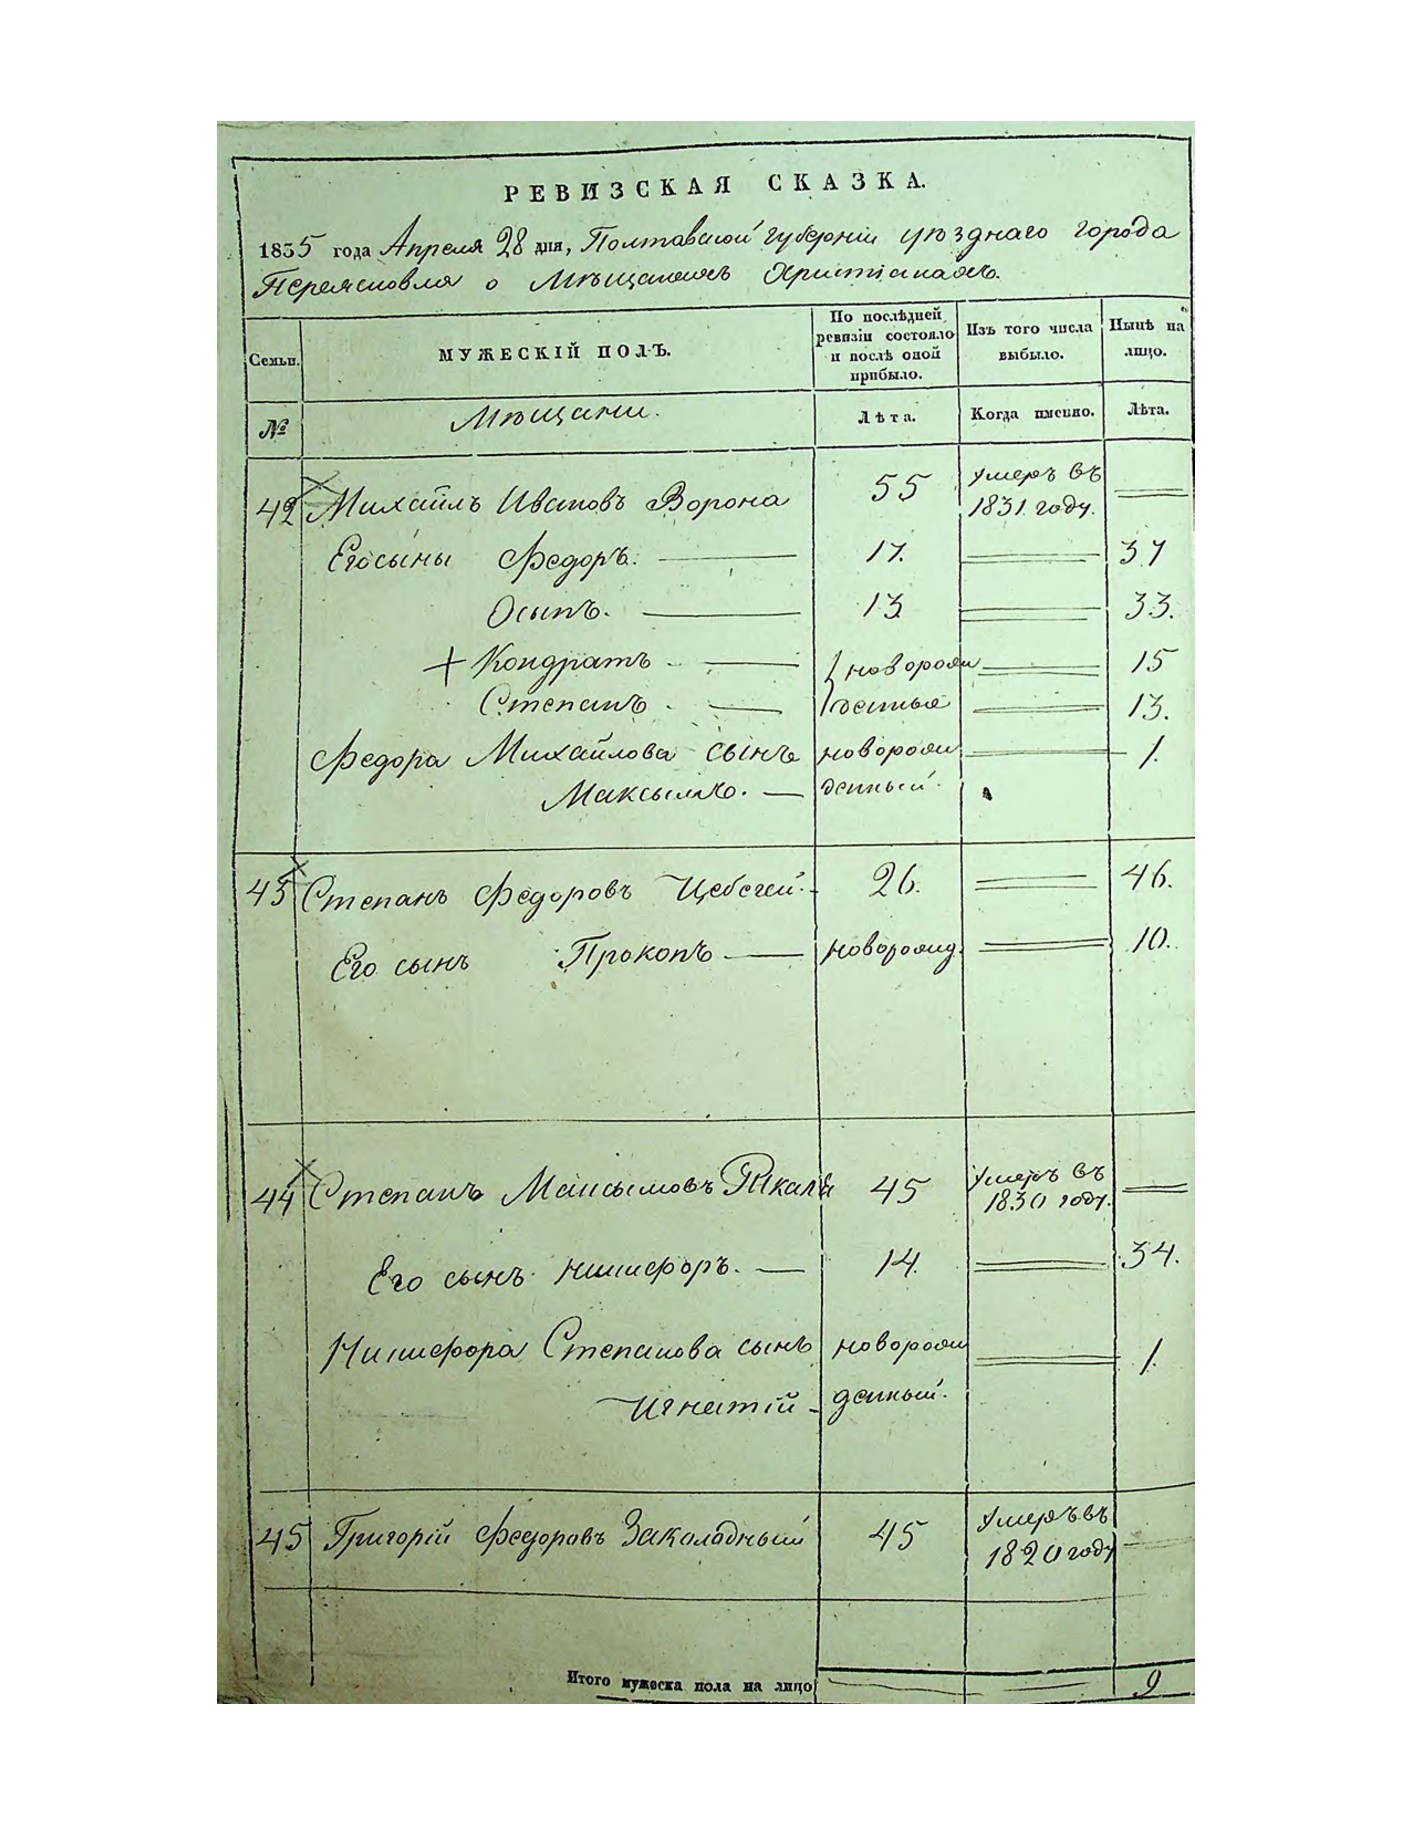 РЕВИЗСКАЯ СКАЗКА.
1835 года Апреля 28 дня, Полтавской губерніи уѣзднаго города
Переяславля о Мѣщанахъ Христіанахъ.
Семьи. МУЖЕСКІЙ ПОЛЪ. По послѣдней ревизіи состояло и послѣ оной прибыло. Изъ того числа выбыло. Нынѣ на лицо.
№ Мѣщани. Лѣта. Когда именно. Лѣта.
42 Михайлъ Ивановъ Ворона 55 умеръ въ 1831 году.
Его сыны Федоръ. 17. 37
Осыпъ. 13 33.
+ Кондратъ новорож 15
Степанъ денные 13.
Федора Михайлова сынъ новорож 1.
Максымъ. денный.
43 Степанъ Федоровъ Цебегей. 26. 46.
Его сынъ Прокопъ новорожд. 10.
44 Степанъ Максымовъ Ткаля 45 Умеръ въ 1830 году.
Его сынъ Никифоръ. 14. 34.
Никифора Степанова сынъ новорож 1.
Игнатій денный.
45 Григорій Федоровъ Заколадный 45 Умеръ въ 1820 году
Итого мужеска пола на лицо 9